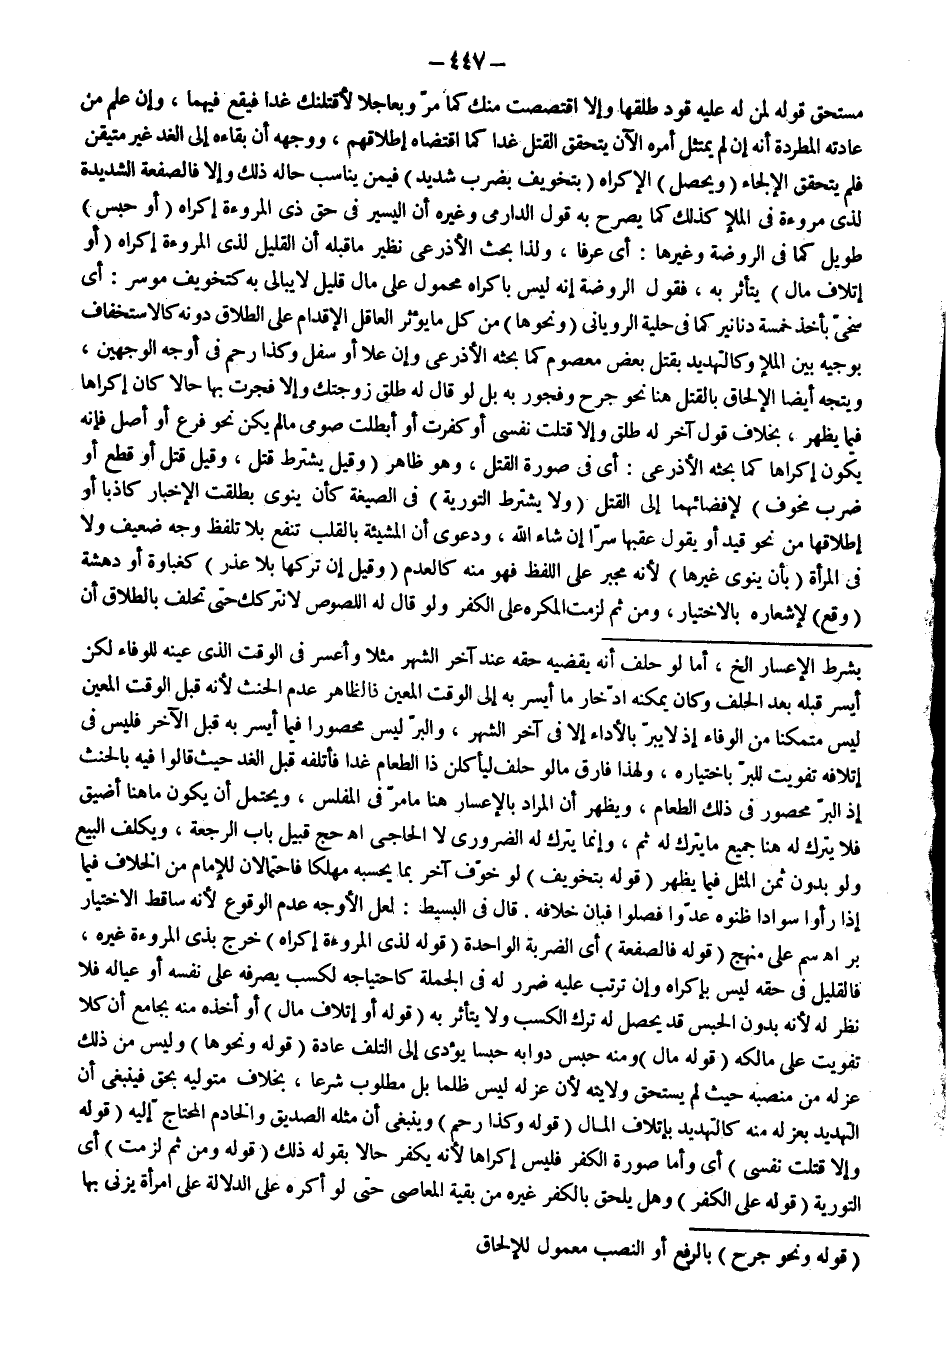 – ٤٤٧ –
مستحق قوله لمن له عليه قود طلقها وإلا اقتصصت منك كما مرّ وبعاجلا لأقتلنك غدا فيقع فيهما ، وإن علم من
عادته المطردة أنه إن لم يمتثل أمره الآن يتحقق القتل غدا كما اقتضاه إطلاقهم ، ووجهه أن بقاءه إلى الغد غير متيقن
فلم يتحقق الإلجاء ( ويحصل ) الإكراه ( بتخويف بضرب شديد ) فيمن يناسب حاله ذلك وإلا فالصفعة الشديدة
لذى مروءة فى الملإ كذلك كما يصرح به قول الدارمى وغيره أن اليسير فى حق ذى المروءة إكراه ( أو حبس )
طويل كما فى الروضة وغيرها : أى عرفا ، ولذا بحث الأذرعى نظير ماقبله أن القليل لذى المروءة إكراه ( أو
إتلاف مال ) يتأثر به ، فقول الروضة إنه ليس باكراه محمول على مال قليل لايبالى به كتخويف موسر : أى
سخىّ بأخذ خمسة دنانير كما فى حلية الرويانى ( ونحوها ) من كل مايؤثر العاقل الإقدام على الطلاق دونه كالاستخفاف
بوجيه بين الملإ وكالتهديد بقتل بعض معصوم كما بحثه الأذرعى وإن علا أو سفل وكذا رحم فى أوجه الوجهين ،
ويتجه أيضا الإلحاق بالقتل هنا نحو جرح وفجور به بل لو قال له طلق زوجتك وإلا فجرت بها حالا كان إكراها
فيما يظهر ، بخلاف قول آخر له طلق وإلا قتلت نفسى أو كفرت أو أبطلت صومى مالم يكن نحو فرع أو أصل فإنه
يكون إكراها كما بحثه الأذرعى : أى فى صورة القتل ، وهو ظاهر ( وقيل يشترط قتل ، وقيل قتل أو قطع أو
ضرب مخوف ) لإفضائهما إلى القتل ( ولا يشترط التورية ) فى الصيغة كأن ينوى بطلقت الإخبار كاذبا أو
إطلاقها من نحو قيد أو يقول عقبها سرّا إن شاء الله ، ودعوى أن المشيئة بالقلب تنفع بلا تلفظ وجه ضعيف ولا
فى المرأة ( بأن ينوى غيرها ) لأنه مجبر على اللفظ فهو منه كالعدم ( وقيل إن تركها بلا عذر ) كغباوة أو دهشة
( وقع ) لإشعاره بالاختيار ، ومن ثم لزمت المكره على الكفر ولو قال له اللصوص لانتركك حتى تحلف بالطلاق أن
بشرط الإعسار الخ ، أما لو حلف أنه يقضيه حقه عند آخر الشهر مثلا وأعسر فى الوقت الذى عينه للوفاء لكن
أيسر قبله بعد الحلف وكان يمكنه ادّخار ما أيسر به إلى الوقت المعين فالظاهر عدم الحنث لأنه قبل الوقت المعين
ليس متمكنا من الوفاء إذ لايبرّ بالأداء إلا فى آخر الشهر ، والبرّ ليس محصورا فيما أيسر به قبل الآخر فليس فى
إتلافه تفويت للبرّ باختياره ، ولهذا فارق مالو حلف ليأكلن ذا الطعام غدا فأتلفه قبل الغد حيث قالوا فيه بالحنث
إذ البرّ محصور فى ذلك الطعام ، ويظهر أن المراد بالإعسار هنا مامرّ فى المفلس ، ويحتمل أن يكون ماهنا أضيق
فلا يترك له هنا جميع مايترك له ثم ، وإنما يترك له الضرورى لا الحاجى اه حج قبيل باب الرجعة ، ويكلف البيع
ولو بدون ثمن المثل فيما يظهر ( قوله بتخويف ) لو خوّف آخر بما يحسبه مهلكا فاحتمالان للإمام من الخلاف فيما
إذا رأوا سوادا ظنوه عدوّا فصلوا فبان خلافه . قال فى البسيط : لعل الأوجه عدم الوقوع لأنه ساقط الاختيار
بر اه سم على منهج ( قوله فالصفعة ) أى الضربة الواحدة ( قوله لذى المروءة إكراه ) خرج بذى المروءة غيره ،
فالقليل فى حقه ليس بإكراه وإن ترتب عليه ضرر له فى الجملة كاحتياجه لكسب يصرفه على نفسه أو عياله فلا
نظر له لأنه بدون الحبس قد يحصل له ترك الكسب ولا يتأثر به ( قوله أو إتلاف مال ) أو أخذه منه بجامع أن كلا
تفويت على مالكه ( قوله مال ) ومنه حبس دوابه حبسا يؤدى إلى التلف عادة ( قوله ونحوها ) وليس من ذلك
عزله من منصبه حيث لم يستحق ولايته لأن عزله ليس ظلما بل مطلوب شرعا ، بخلاف متوليه بحق فينبغى أن
التهديد بعزله منه كالتهديد بإتلاف المال ( قوله وكذا رحم ) وينبغى أن مثله الصديق والخادم المحتاج إليه ( قوله
وإلا قتلت نفسى ) أى وأما صورة الكفر فليس إكراها لأنه يكفر حالا بقوله ذلك ( قوله ومن ثم لزمت ) أى
التورية ( قوله على الكفر ) وهل يلحق بالكفر غيره من بقية المعاصى حتى لو أكره على الدلالة على امرأة يزنى بها
( قوله ونحو جرح ) بالرفع أو النصب معمول للإلحاق